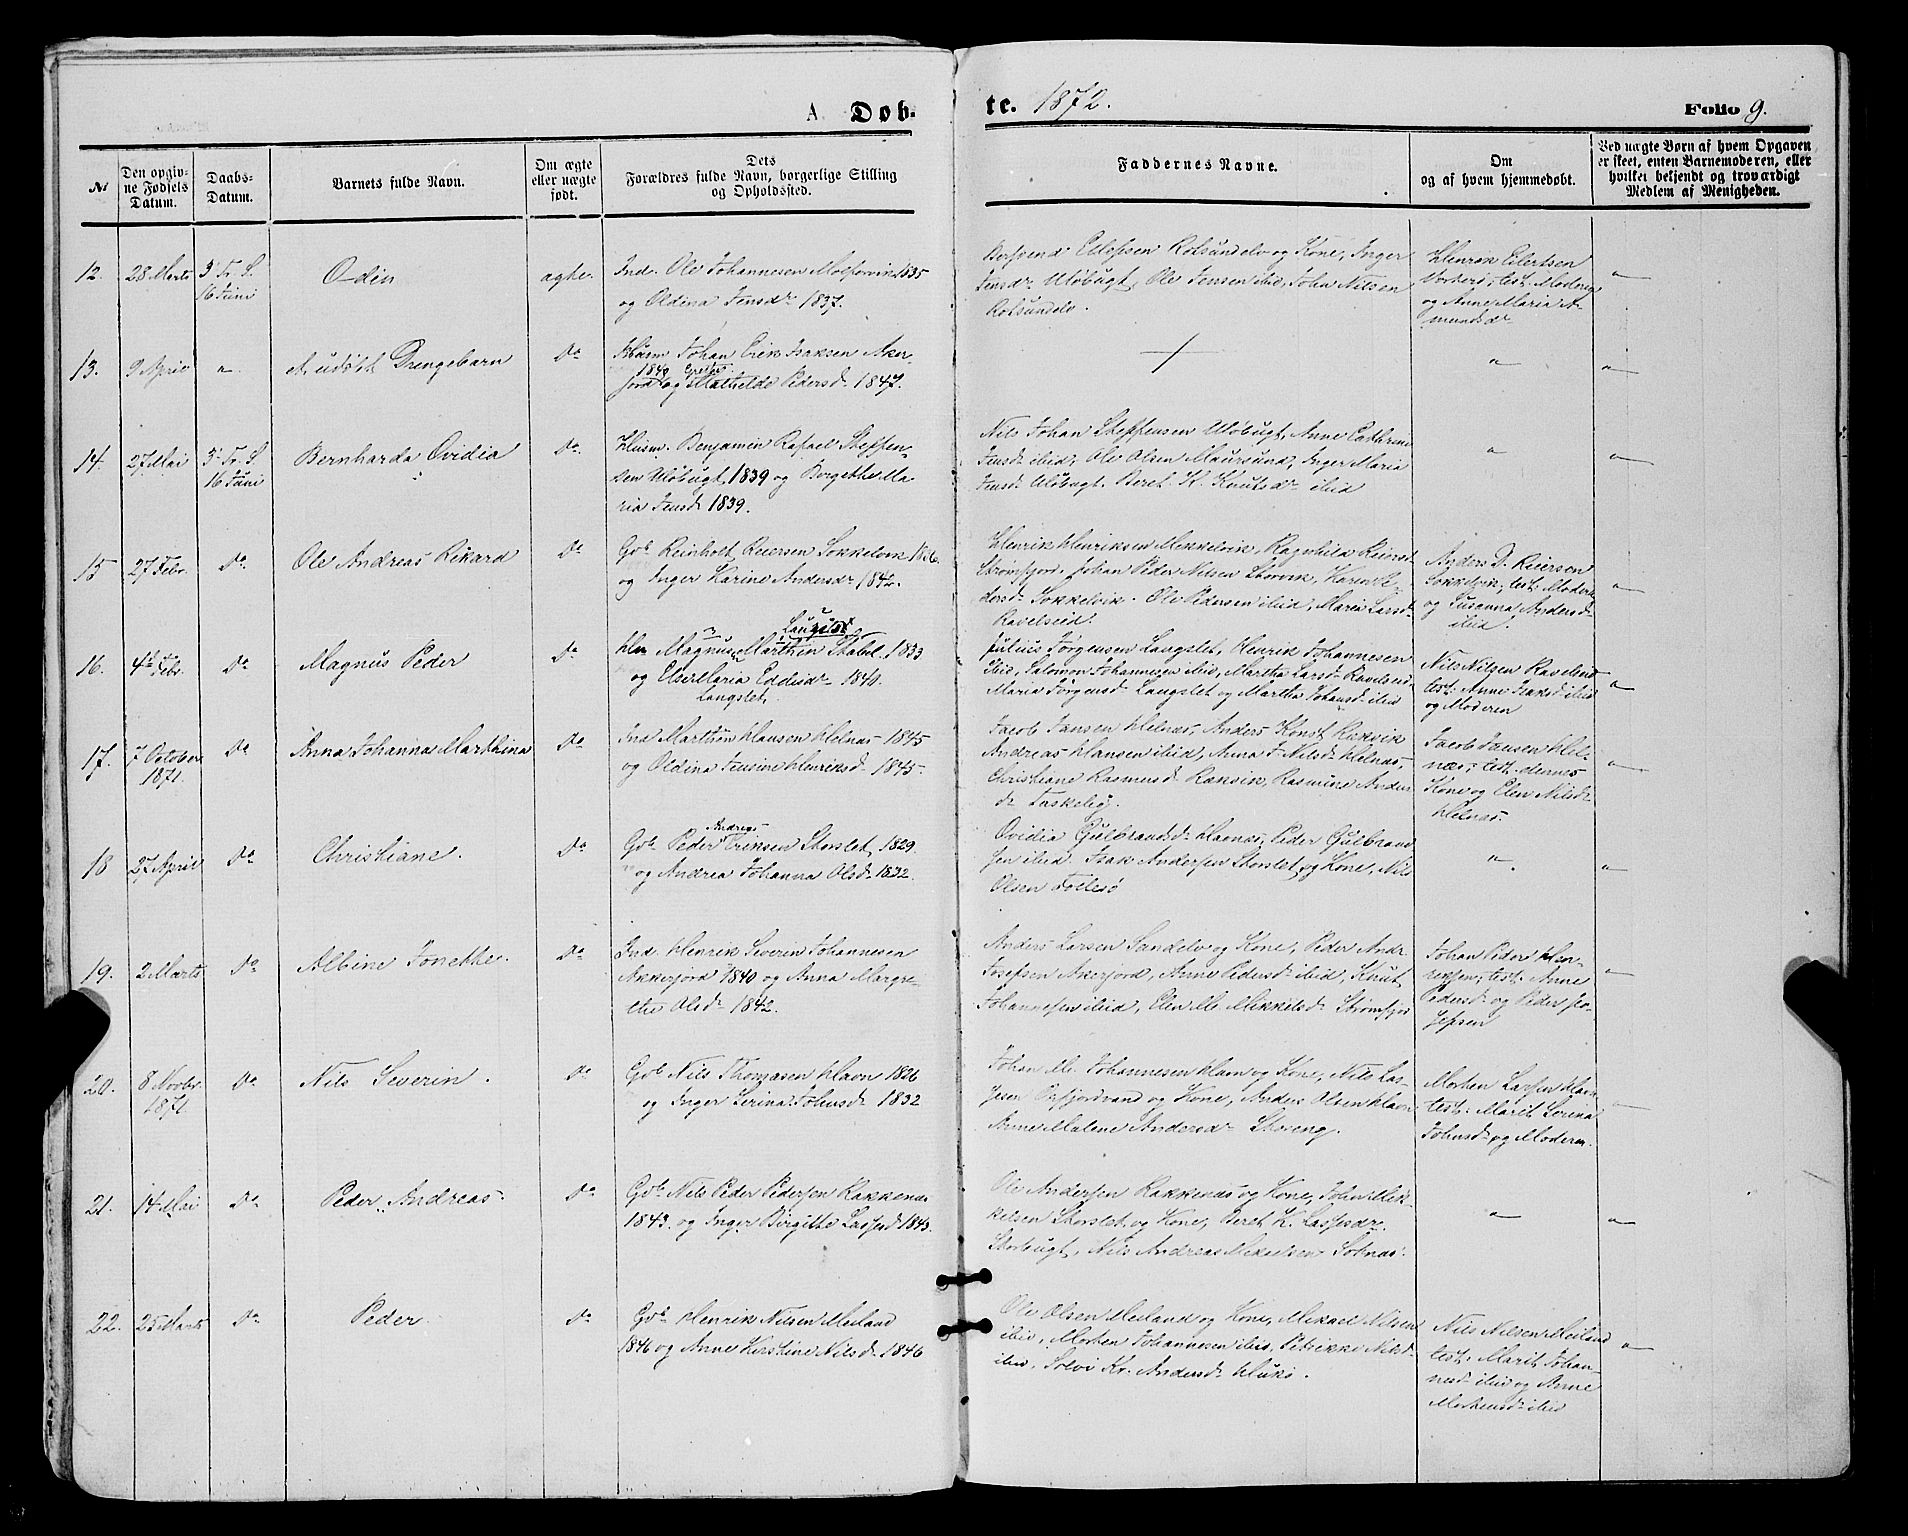 A Døb-
te. 1872.
Folio 9.
№
Den opgiv-
ne Fødsels
Datum.
Daabs-
Datum.
Barnets fulde Navn.
Om ægte
eller uægte
født.
Dets
Forældres fulde Navn, borgerlige Stilling
og Opholdssted.
Faddernes Navne.
Om
og af hvem hjemmedøbt.
Ved uægte Børn af hvem Opgaven
er skeet, enten Barnemoderen, eller
hvilket bekjendt og troværdigt
Medlem af Menigheden.
12. 28 Marts
16 Juni
Odin
Ind. Ole Johannesen 1835
og Oldina Jensdr 1837.
Eilefsen Rotsundelv og Kone, Inger
Jensdr Uløbugt, Ole Jensen ibid, John Nilsen
Rotsundelv.
Henrik Eilertsen
test. Moderen
og Anne Maria A-
mundsdr
13. 9 April "
Et udøbt Drengebarn
Do
Husm Johan Erik Isaksen Aker-
1840
fjord og Mathilde Pedersdr 1847.
"
"
14. 27 Mai
16 Juni
Bernharda Ovidia
Do
Husm. Benjamin Rafael Steffen-
sen Uløbugt 1839 og Borgethe Ma-
ria Jensdr 1839.
Nils Johan Steffensen Uløbugt, Anne Cathrine
Jensdr ibid, Ole Olsen Maursund, Inger Maria
Jensdr Uløbugt. Beret K. Knutsdr ibid
"
"
15 27 Febr. Do
Ole Andreas Rikard
Do
Gdb Reinholt Reiersen Sokkelvik 1826.
og Inger Karine Andersdr 1842.
Henrik Henriksen Mikkelvik, Ragnhild Reiersdr
Strømfjord, Johan Peder Nilsen Storvik, Karen Pe-
dersdr Sokkelvik. Ole Pedersen ibid, Maria Larsdr
Ravelseid.
Anders D. Reiersen
Sokkelvik, test. Moderen
og Susanna Andersdr
ibid.
"
16. 4de Febr. Do
Magnus Peder
Do
Langslet
Magnus Marthin 1833
og Else Maria 1840.
Langslet.
Julius Jørgensen Langslet, Henrik Johannesen
ibid, Salomon Johannesen ibid, Martha Larsdr Ravelseid
Maria Jørgensdr Langslet og Martha Johansdr ibid
Nils Nilsen Ravelseid
test. Anne Isaksdr ibid
og Moderen
"
17. 7 October
1871.
Do
Anna Johanna Marthina
Do
Ind Marthin Hansen Helnæs 1845
og Oldina Jensine Henriksdr 1845.
Jacob Jansen Helnæs, Anders Konst Rakvik
Andreas Hansen ibid, Anna J. Nilsdr Helnæs,
Christiane Rasmusdr Rakvik, Rasmine Anders
dr
Jacob Jansen Hel-
næs, test. dennes
Kone og Elen Nilsdr
Helnæs.
"
18 27 April Do
Christiane.
Do
Andreas
Gdb Peder Eriksen Storslet 1829.
og Andrea Johanna Olsdr 1832.
Ovidia Gulbrandsdr Havnæs, Peder Gulbrand
sen ibid. Isak Andersen Storslet og Kone, Nils
Olsen Follesø
"
"
19. 2 Marts Do
Albine Jonette.
Do
Ind. Henrik Severin Johannesen
Akkerfjord 1840 og Anna Margre-
the Olsdr 1842.
Anders Larsen Sandelv og Kone, Peder Andr.
Josefsen Akerfjord, Anne Pedersdr ibid, Knut
Johannesen ibid, Elen M. Mikkelsdr Strømfjor
Johan Peder Hen-
riksen, test. Anne
Pedersdr og Peder Jo-
sefsen
"
20. 8 Novbr.
1871
Do
Nils Severin.
Do
Gdb Nils Thomasen Havn 1826
og Inger Serina Johnsdr 1832
Johan M. Johannesen Havn og Kone, Nils Las-
sen Oxfjordvand og Kone, Anders Olsen Havn
Anne Malene Andersdr Storeng.
Morten Larsen Havn
test. Marit Serina
Johnsdr og Moderen.
21. 14 Mai Do
Peder Andreas.
Do
Gdb Nils Peder Pedersen Rakkenæs
1843. og Inger Birgitte Lassesdr 1843.
Ole Andersen Rakkenæs og Kone, John Mik-
kelsen Storslet og Kone, Beret K. Lassesdr
Storbugt, Nils Andreas Mikkelsen
"
"
22. 25 Marts Do
Peder.
Do
Gdb Henrik Nilsen Meiland
1846 og Anne Kirstine Nilsdr 1846
Ole Olsen Meiland og Kone, Mikael Nilsen
ibid, Morten Johannesen ibid, Petrikke Nilsdr
ibid, Solvi Kr. Andersdr Hukø.
Nils Nilsen Meiland
test. Marit Johan-
nesdr ibid og Anne
Mortensdr ibid
"